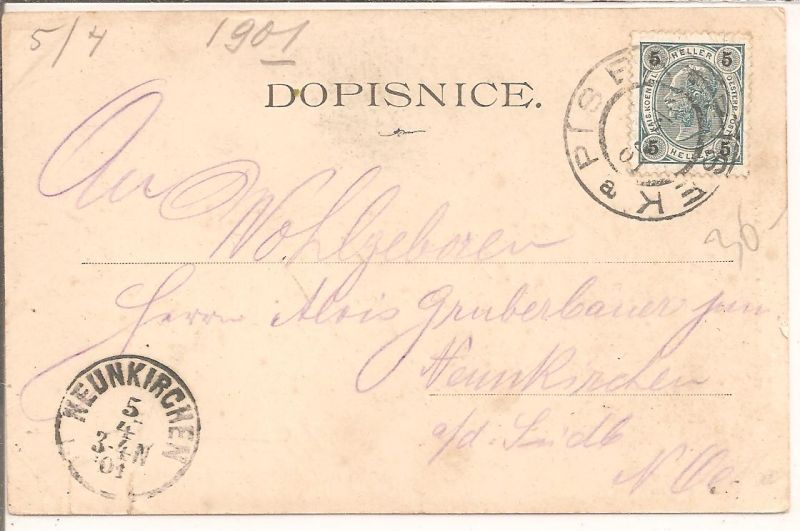 5/4 1901
DOPISNICE.
5 HELLER 5
KAIS. KOENIGL. OESTERR. POST
5 HELLER 5
PISEK
An
Wohlgeboren
Herrn Alois Gruberbauer jun.
Neunkirchen
a/d. Südb
N Oe.
36
NEUNKIRCHEN
5
4
3-4N
01